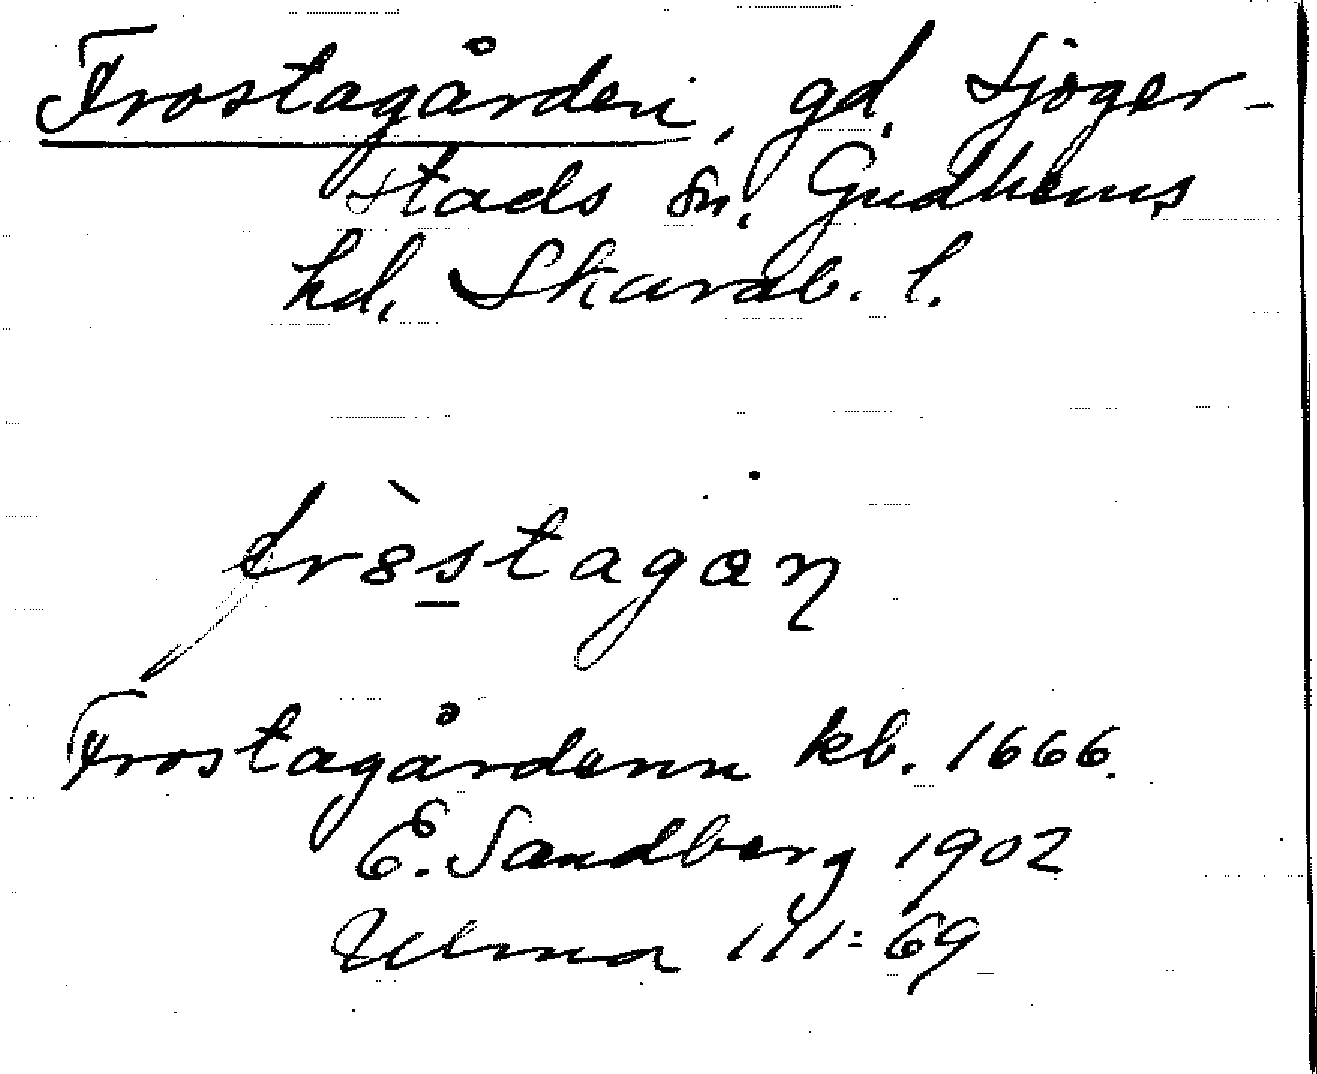 Frostagården, gd. Sjöger-
stads sn. Gudhems
hd. Skarab. l.
fr8̀stagaŋ
Frostagårdenn kb. 1666.
E. Sandberg 1902
Ulma 111:69